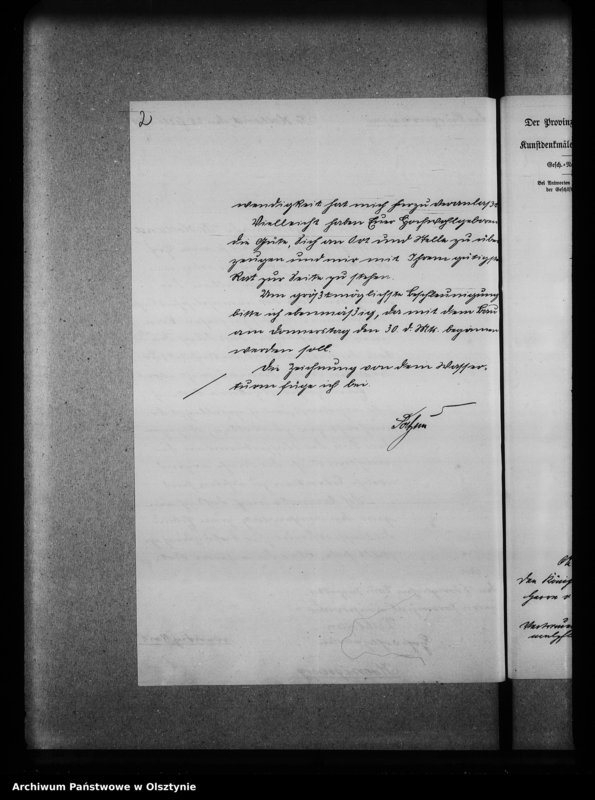 2
wendigkeit hat mich hierzu veranlaßt.
Vielleicht haben Euer Hochwohlgeboren
die Güte, sich an Ort und Stelle zu über
zeugen und mir mit Ihrem gütigsten
Rat zur Seite zu stehen.
Um größtmöglichste Beschleunigung
bitte ich ebenmäßig, da mit dem Bau
am Donnerstag den 30. d. Mts. begonnen
werden soll.
Die Zeichnung von dem Wasser-
turm füge ich bei.
Der Provinz
Kunstdenkmäle
Gesch.-N
Bei Antworten
der Geschäft
den König
Herrn
Archiwum Państwowe w Olsztynie